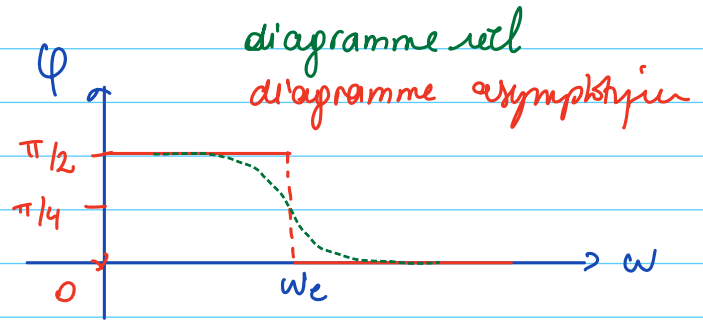 diagramme réel
φ
diagramme asymptotique
π/2
π/4
0
ωc
ω